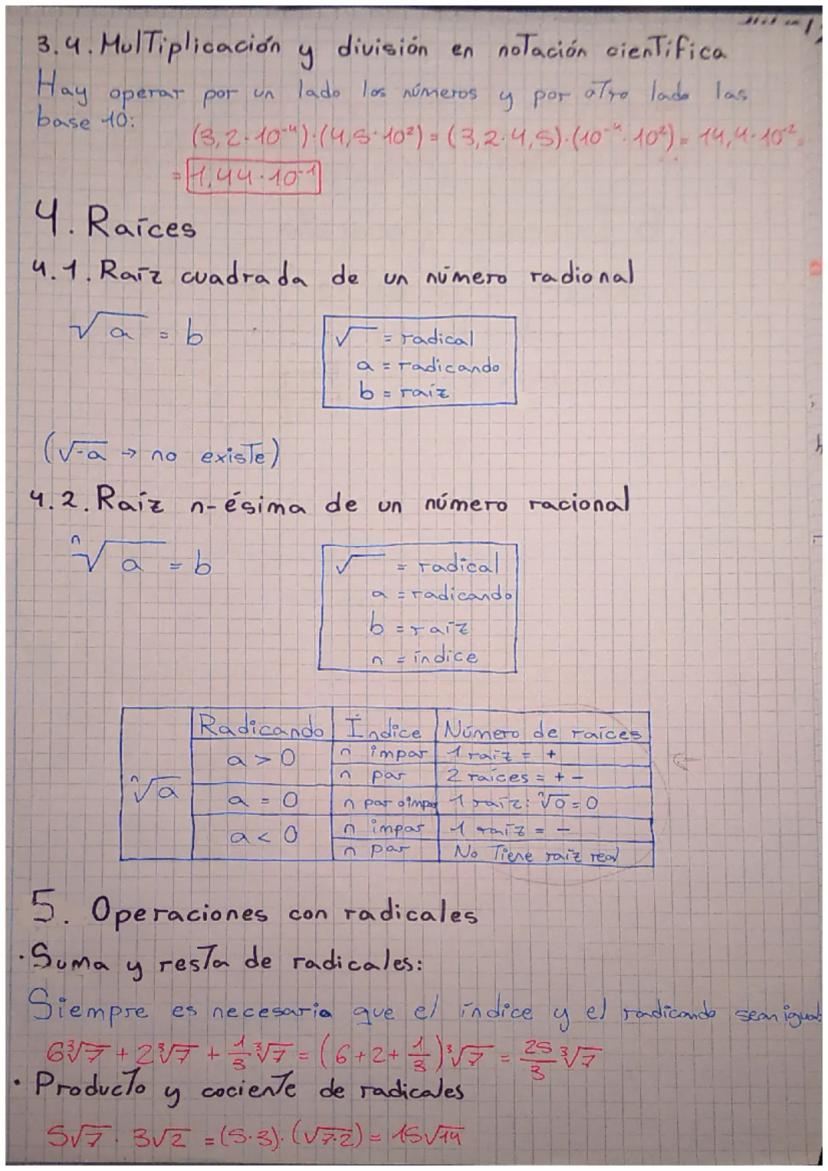 3.4. Multiplicación y división en notación cientifica
Hay operar por un lado los números y por otro lado las
base 10:
(3,2·10⁻⁴)·(4,5·10²) = (3,2·4,5)·(10⁻⁴·10²) = 14,4·10⁻² =
= 1,44·10⁻¹
4. Raíces
4.1. Raíz cuadrada de un número radional
√a = b
√ = radical
a = radicando
b = raíz
(√-a → no existe)
4.2. Raíz n-ésima de un número racional
ⁿ√a = b
√ = radical
a = radicando
b = raíz
n = índice
Radicando Índice Número de raíces
ⁿ√a
a > 0 n impar 1 raíz = +
n par 2 raíces = + -
a = 0 n par o impar 1 raíz: ⁿ√0 = 0
a < 0 n impar 1 raíz = -
n par No Tiene raíz real
5. Operaciones con radicales
·Suma y resta de radicales:
Siempre es necesario que el índice y el radicando sean igual
6∛7 + 2∛7 + 1/3 ∛7 = (6+2+1/3)∛7 = 25/3 ∛7
· Producto y cociente de radicales
5√7 · 3√2 = (5·3)·(√7·2) = 15√14